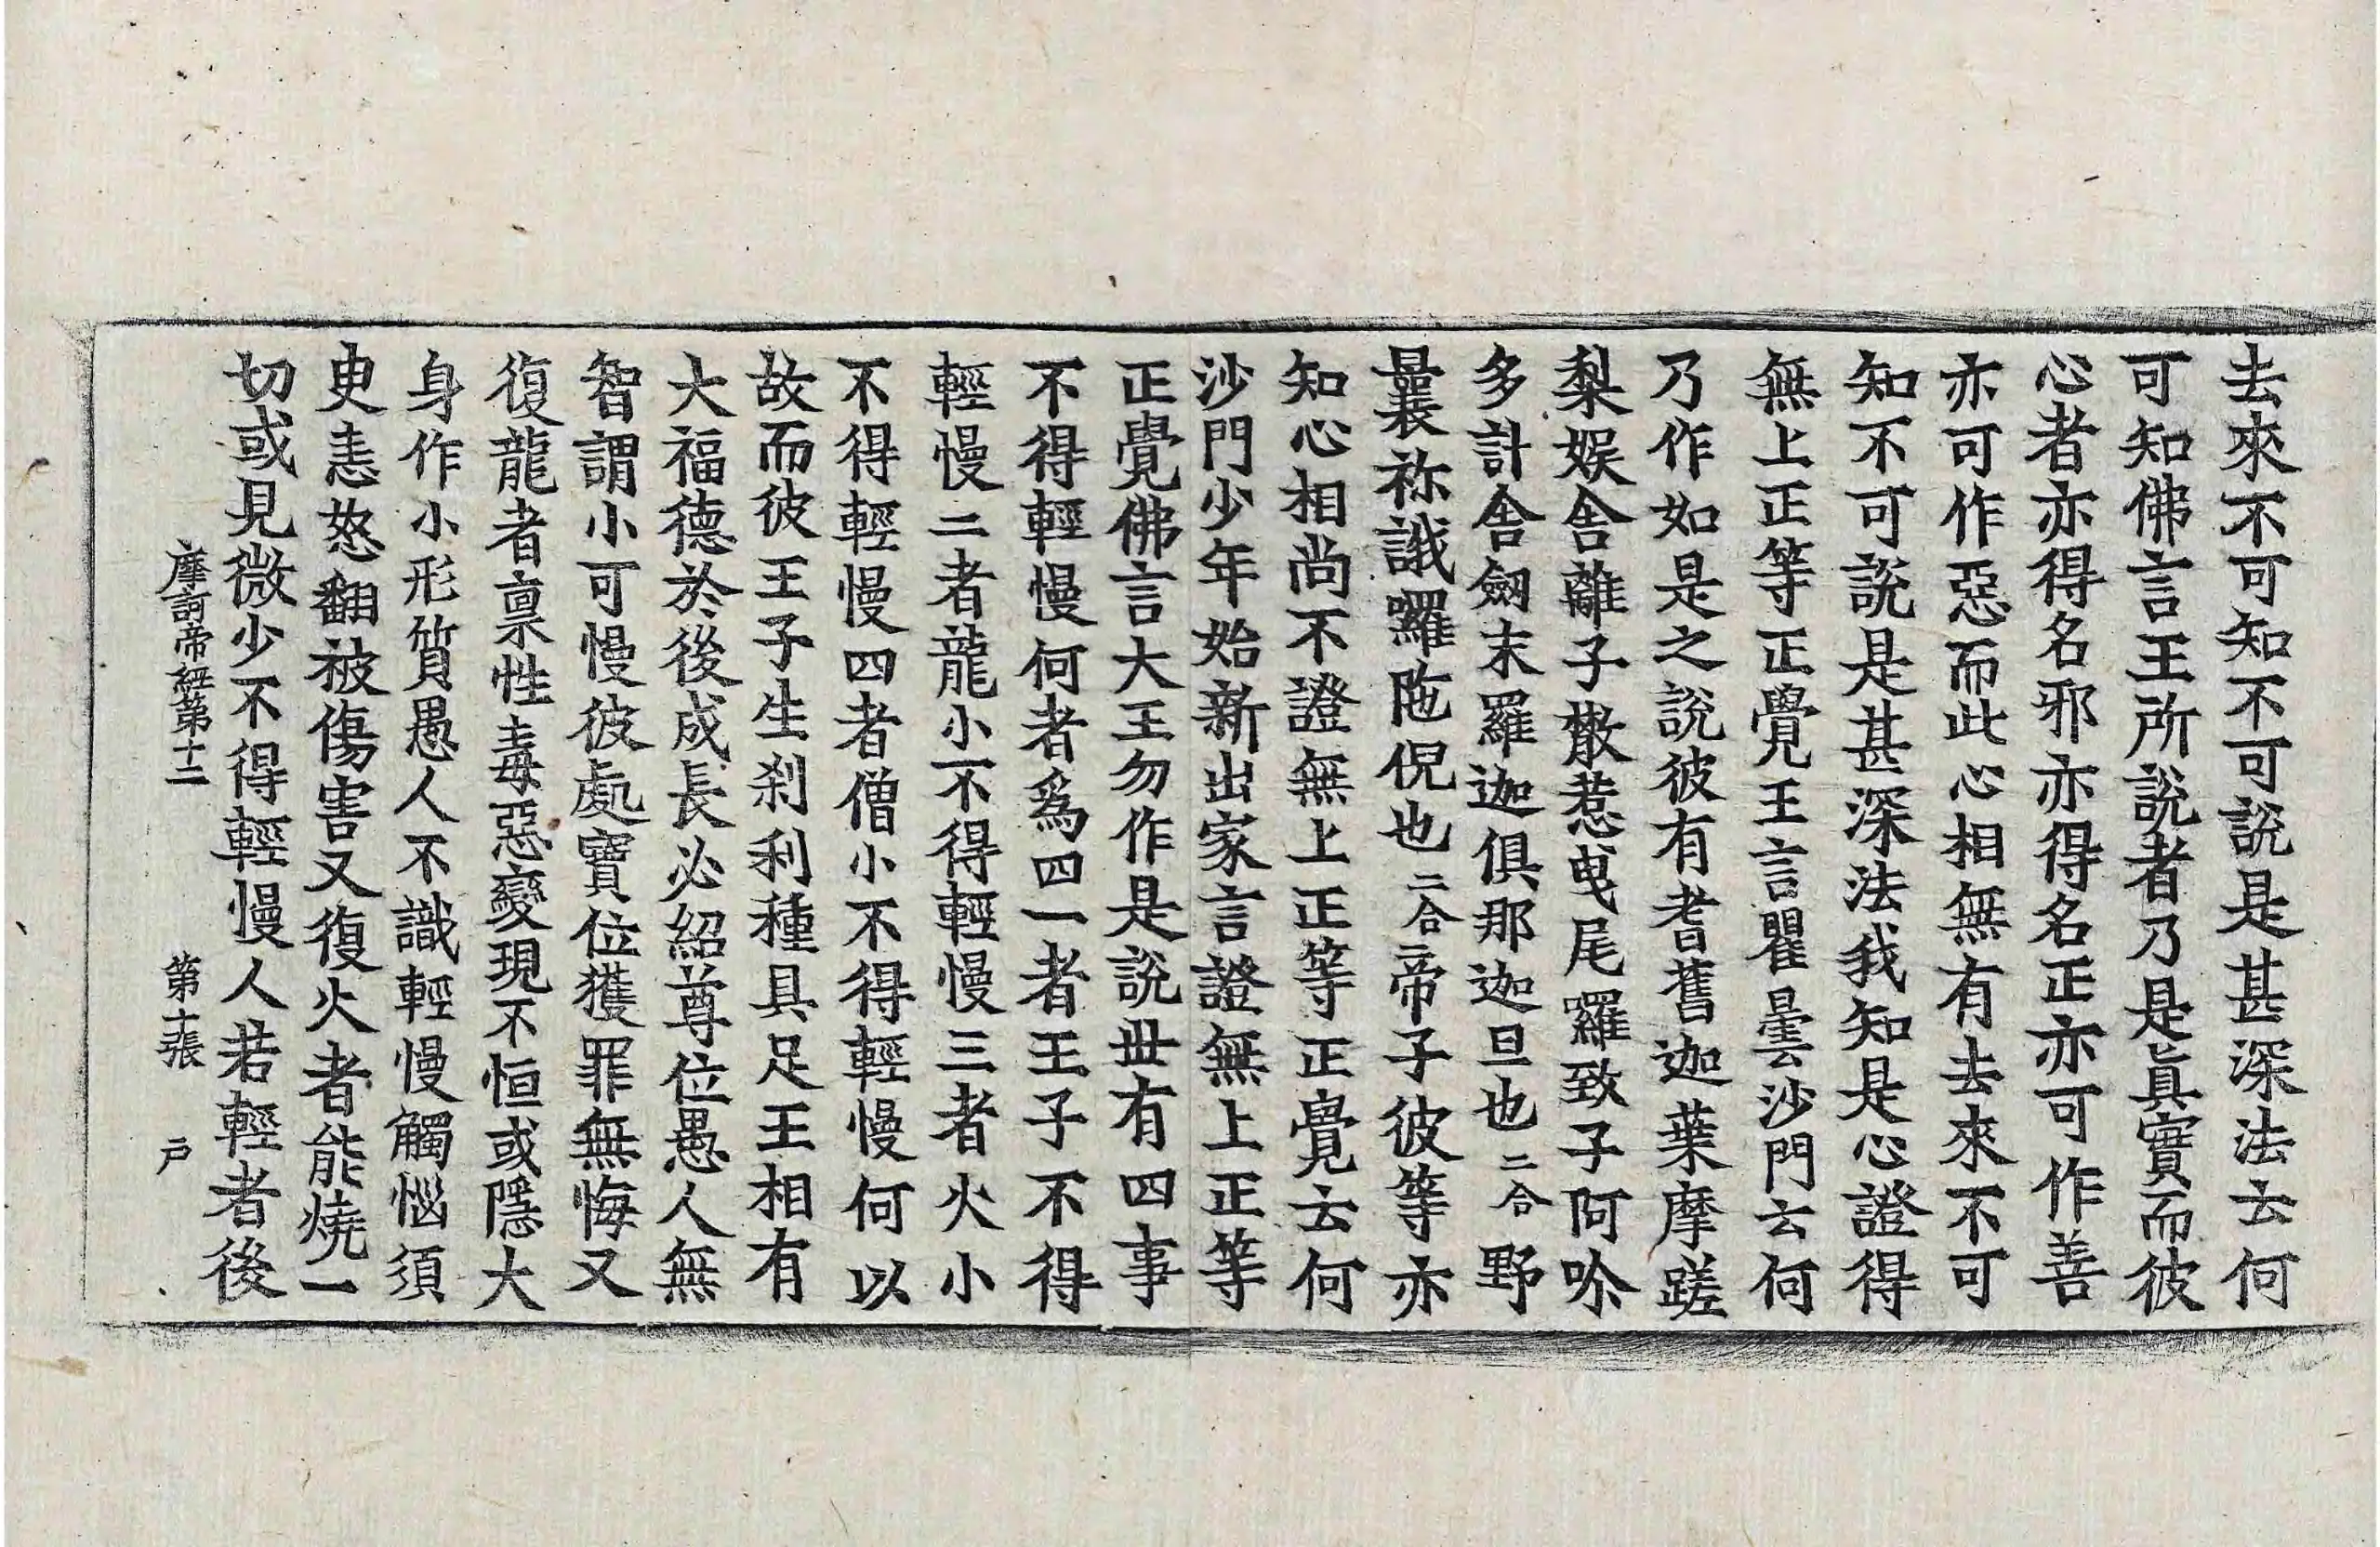 去來不可知不可說是甚深法去何
可知佛言王所說者乃是眞實而彼
心者亦得名邪亦得名正亦可作善
亦可作惡而此心相無有去來不可
知不可說是甚深法我知是心證得
無上正等正覺王言瞿曇沙門云何
乃作如是之說彼有耆舊迦葉摩蹉
梨娱舍離子散惹曳尾羅致子阿唅
多計舍劔末羅迦俱那迦旦也二合野
曩祢誐囉陁倪也二合帝子彼等亦
知心相尚不證無上正等正覺云何
沙門少年始新出家言證無上正等
正覺佛言大王勿作是說世有四事
不得輕慢何者爲四一者王子不得
輕慢二者龍小不得輕慢三者火小
不得輕慢四者僧小不得輕慢何以
故而彼王子生刹利種具足王相有
大福德於後成長必紹尊位愚人無
智謂小可慢彼處寶位獲罪無悔又
復龍者禀性毒惡變現不恒或隱大
身作小形質愚人不識輕慢觸惱須
臾恚怒翻被傷害又復火者能燒一
切或見微少不得輕慢人若輕者後
摩訶帝經第十二 第十張 戸